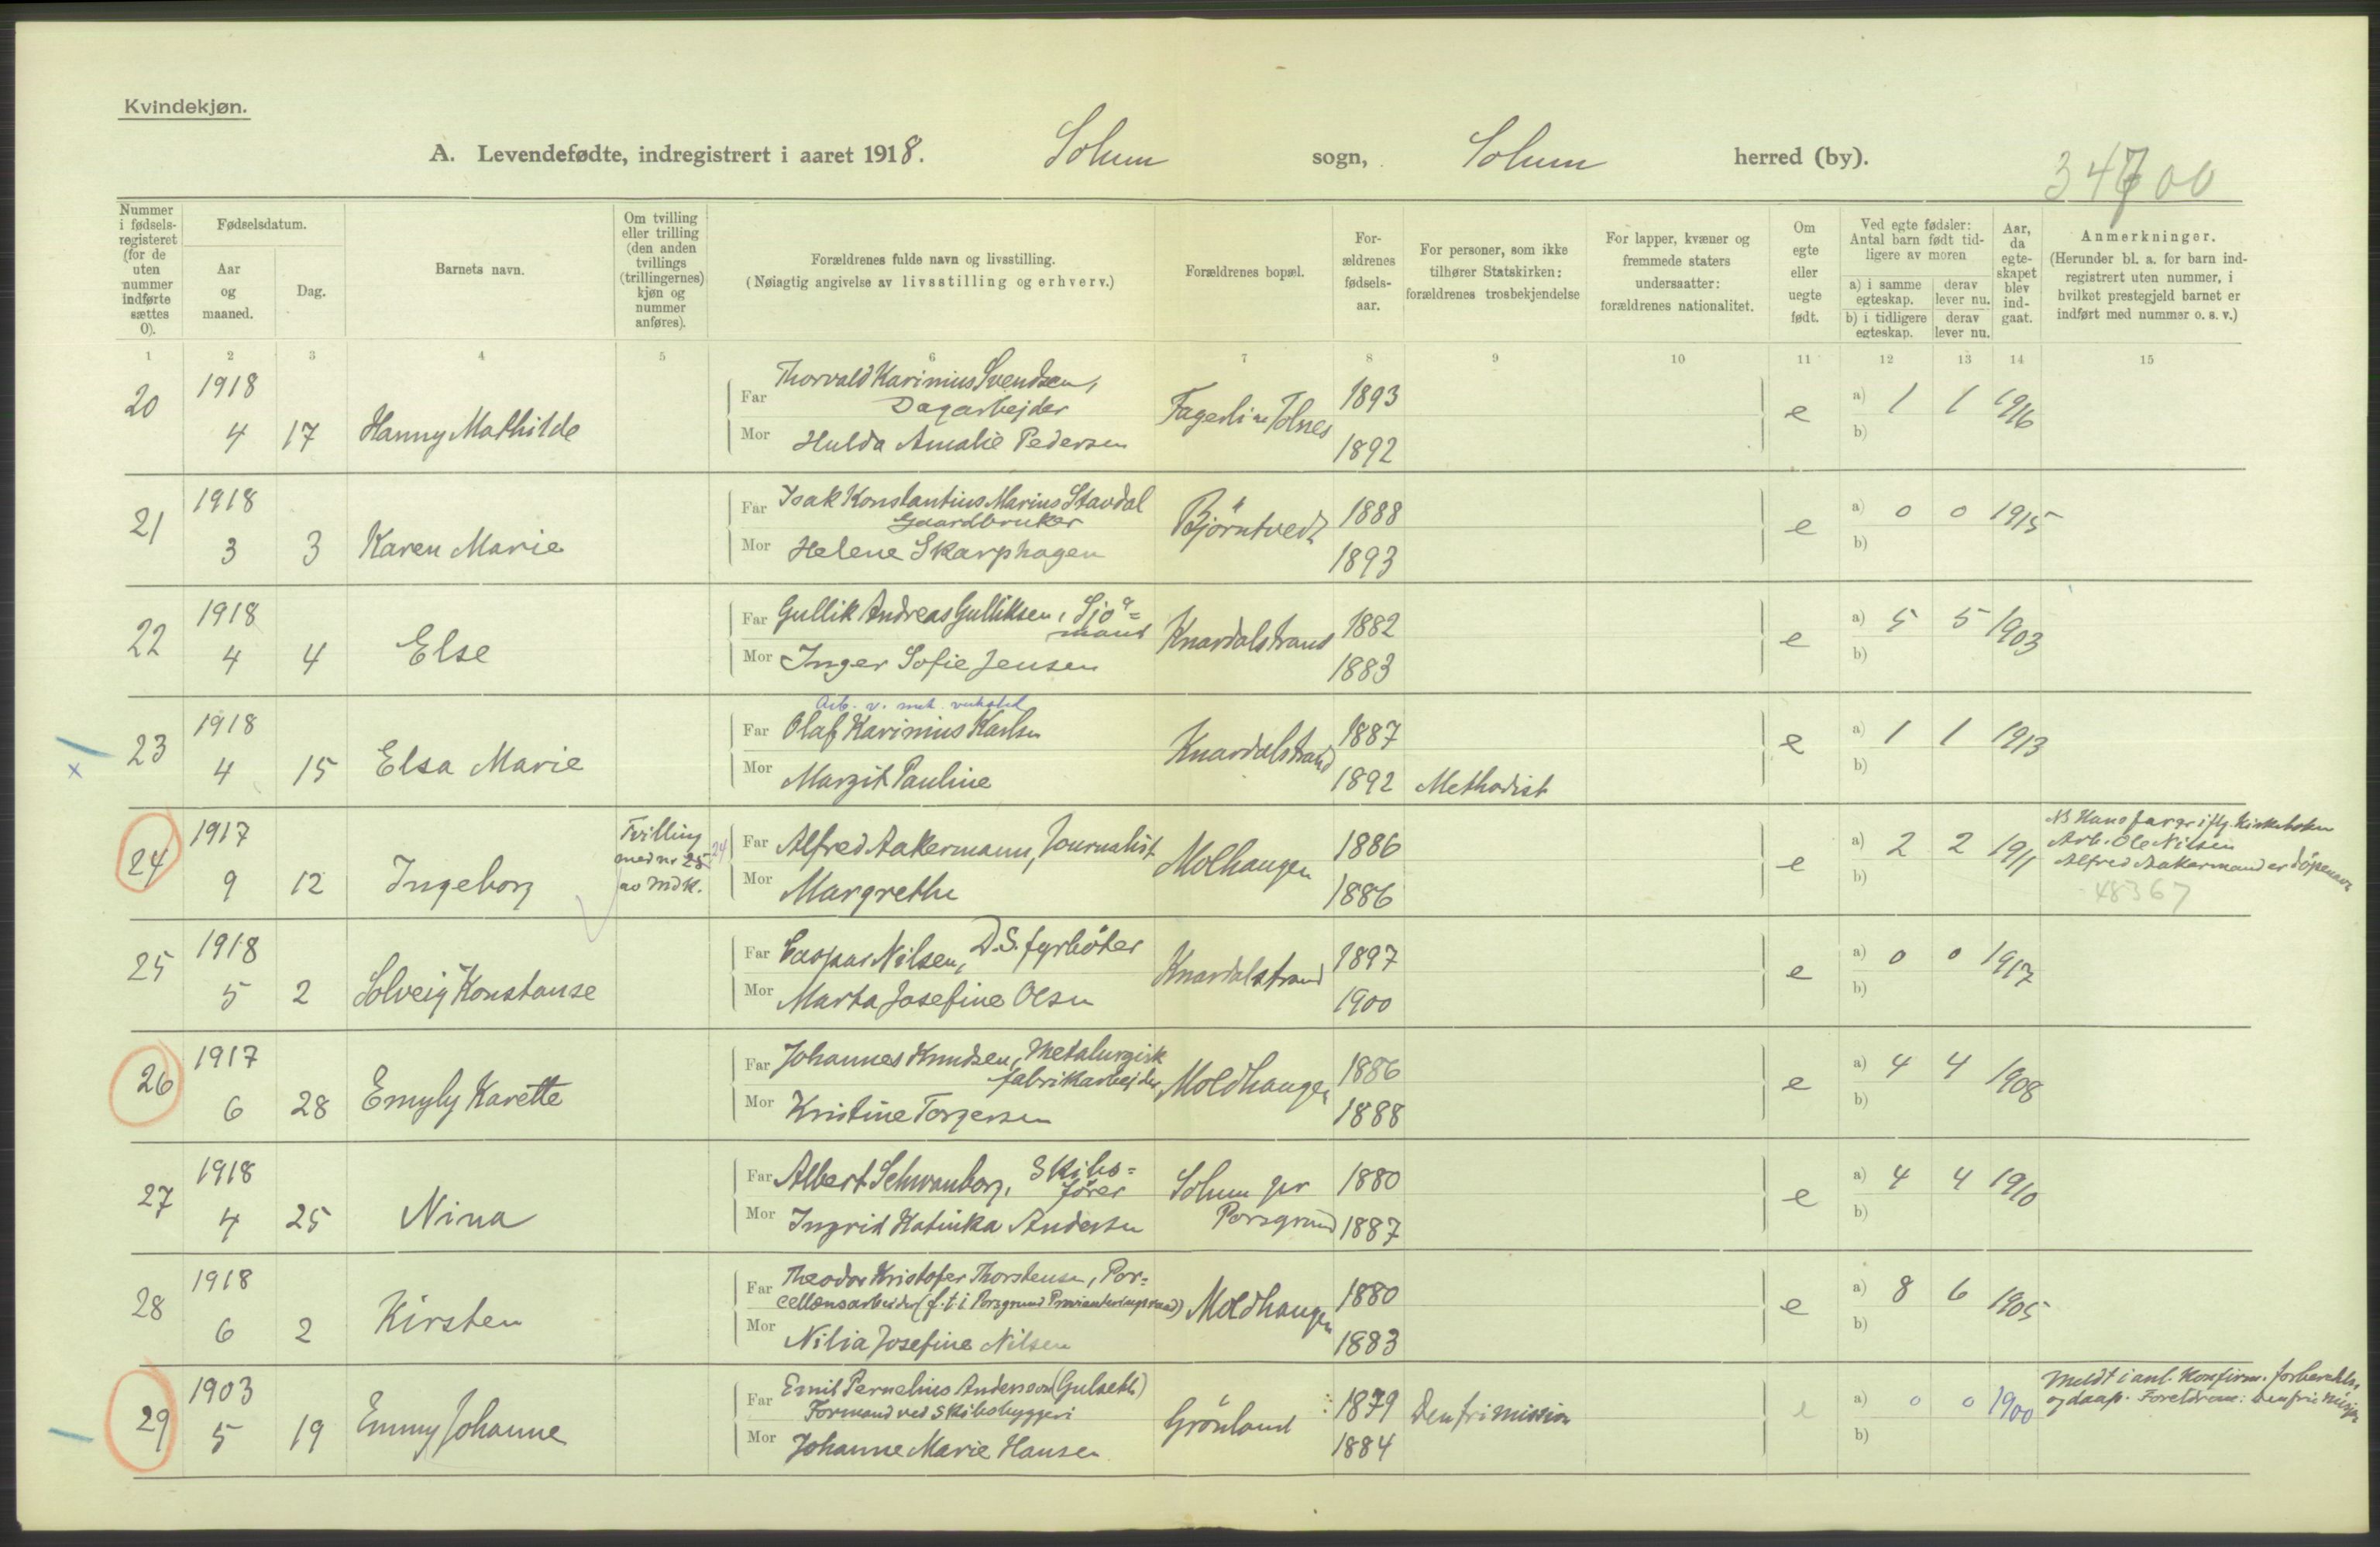 Kvindekjøn.
A. Levendefødte, indregistrert i aaret 1918. Solum sogn, Solum herred (by).
34700
Nummer i fødselsregisteret (for de uten nummer indførte sættes 0).
Fødselsdatum.
Aar og maaned.
Dag.
Barnets navn.
Om tvilling eller trilling (den anden tvillings (trillingernes) kjøn og nummer anføres).
Forældrenes fulde navn og livsstilling.
(Nøiagtig angivelse av livsstilling og erhverv.)
Forældrenes bopæl.
Forældrenes fødselsaar.
For personer, som ikke tilhører Statskirken: forældrenes trosbekjendelse
For lapper, kvæner og fremmede staters undersaatter: forældrenes nationalitet.
Om egte eller uegte født.
Ved egte fødsler: Antal barn født tidligere av moren
a) i samme egteskap.
derav lever nu.
b) i tidligere egteskap.
derav lever nu.
Aar, da egteskapet blev indgaat.
Anmerkninger.
(Herunder bl. a. for barn indregistrert uten nummer, i hvilket prestegjeld barnet er indført med nummer o. s. v.)
1 2 3 4 5 6 7 8 9 10 11 12 13 14 15
20 1918 4 17 Hanny Mathilde
Far Thorvald Karinius Svendsen,
Dagarbejder
Mor Hulda Amalie Pedersen
Fagerli Tolnes 1893 1892 e a) 1 1 1916
b)
21 1918 3 3 Karen Marie
Far Isak Konstantius Marius Stavdal
Gaardbruker
Mor Helene Skarphagen
Björntvedt 1888 1893 e a) 0 0 1915
b)
22 1918 4 4 Else
Far Gullik Andreas Gulliksen, Sjö=
mand
Mor Inger Sofie Jensen
Knardalstrand 1882 1883 e a) 5 5 1903
b)
23 1918 4 15 Elsa Marie
Arb. v. mek. verksted
Far Olaf Karinius Karlsen
Mor Margit Pauline
Knardalstrand 1887 1892 Methodist e a) 1 1 1913
b)
24 1917 9 12 Ingeborg
Tvilling
med nr 25 24
av mdk.
Far Alfred Aakermann, Journalist
Mor Margrethe
Molhaugen 1886 1886 e a) 2 2 1911
b)
NB Hans far er iflg. Kirkeboken
Arb. Ole Nilsen
Alfred Aakermand er döpenavn
48367
25 1918 5 2 Solveig Konstanse
Far Caspar Nilsen, D.S. fyrböter
Mor Marta Josefine Olsen
Knardalstrand 1897 1900 e a) 0 0 1917
b)
26 1917 6 28 Emyly Karette
Far Johannes Knudsen, Metalurgisk
fabrikarbejder
Mor Kristine Torgersen
Moldhaugen 1886 1888 e a) 4 4 1908
b)
27 1918 4 25 Nina
Far Albert Schwanborg, Skibs=
förer
Mor Ingrid Katinka Andersen
Solum pr
Porsgrund 1880 1887 e a) 4 4 1910
b)
28 1918 6 2 Kirsten
Far Theodor Kristofer Thorstensen, Por=
cellænsarbeider (f.t. i Porsgrund Provianteringsraad)
Mor Nilia Josefine Nilsen
Moldhaugen 1880 1883 e a) 8 6 1905
b)
29 1903 5 19 Emmy Johanne
Far Emil Pernelius Andersson (Gulseth)
Formand ved Skibsbyggeri
Mor Johanne Marie Hansen
Grönland 1879 1884 Den fri mission e a) 0 0 1900
b)
Meldt i anl. Konfirm. forberedelse
og daap. Foreldrene: Den frie Misjon